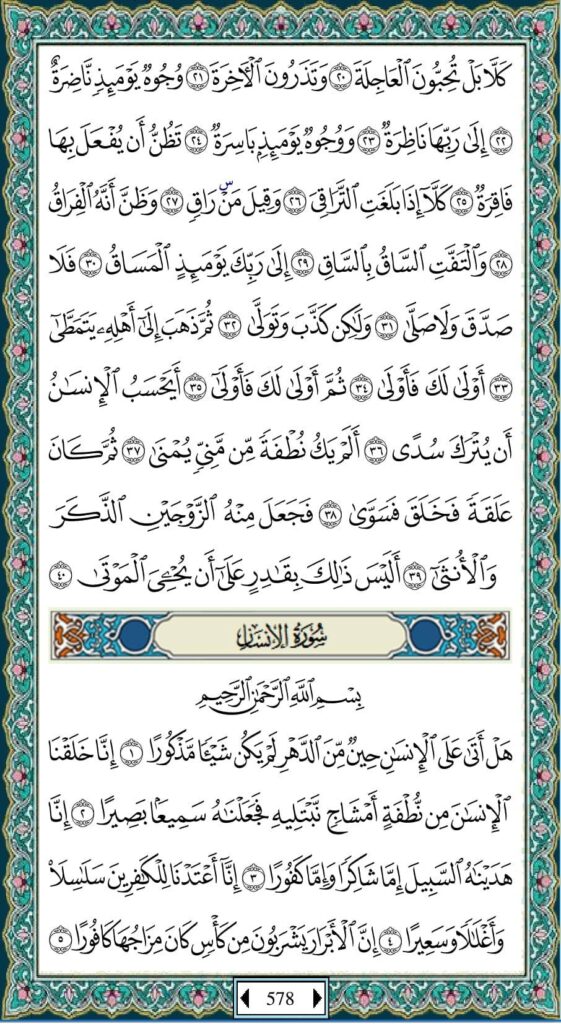 كَلَّا بَلْ تُحِبُّونَ الْعَاجِلَةَ ٢٠ وَتَذَرُونَ الْآخِرَةَ ٢١ وُجُوهٌ يَوْمَئِذٍ نَّاضِرَةٌ
٢٢ إِلَىٰ رَبِّهَا نَاظِرَةٌ ٢٣ وَوُجُوهٌ يَوْمَئِذٍ بَاسِرَةٌ ٢٤ تَظُنُّ أَن يُفْعَلَ بِهَا
فَاقِرَةٌ ٢٥ كَلَّا إِذَا بَلَغَتِ التَّرَاقِيَ ٢٦ وَقِيلَ مَنْ ۜ رَاقٍ ٢٧ وَظَنَّ أَنَّهُ الْفِرَاقُ
٢٨ وَالْتَفَّتِ السَّاقُ بِالسَّاقِ ٢٩ إِلَىٰ رَبِّكَ يَوْمَئِذٍ الْمَسَاقُ ٣٠ فَلَا
صَدَّقَ وَلَا صَلَّىٰ ٣١ وَلَٰكِن كَذَّبَ وَتَوَلَّىٰ ٣٢ ثُمَّ ذَهَبَ إِلَىٰ أَهْلِهِ يَتَمَطَّىٰ
٣٣ أَوْلَىٰ لَكَ فَأَوْلَىٰ ٣٤ ثُمَّ أَوْلَىٰ لَكَ فَأَوْلَىٰ ٣٥ أَيَحْسَبُ الْإِنسَانُ
أَن يُتْرَكَ سُدًى ٣٦ أَلَمْ يَكُ نُطْفَةً مِّن مَّنِيٍّ يُمْنَىٰ ٣٧ ثُمَّ كَانَ
عَلَقَةً فَخَلَقَ فَسَوَّىٰ ٣٨ فَجَعَلَ مِنْهُ الزَّوْجَيْنِ الذَّكَرَ
وَالْأُنثَىٰ ٣٩ أَلَيْسَ ذَٰلِكَ بِقَادِرٍ عَلَىٰ أَن يُحْيِيَ الْمَوْتَىٰ ٤٠
سُورَةُ الْإِنسَانِ
بِسْمِ اللَّهِ الرَّحْمَٰنِ الرَّحِيمِ
هَلْ أَتَىٰ عَلَى الْإِنسَانِ حِينٌ مِّنَ الدَّهْرِ لَمْ يَكُن شَيْئًا مَّذْكُورًا ١ إِنَّا خَلَقْنَا
الْإِنسَانَ مِن نُّطْفَةٍ أَمْشَاجٍ نَّبْتَلِيهِ فَجَعَلْنَاهُ سَمِيعًا بَصِيرًا ٢ إِنَّا
هَدَيْنَاهُ السَّبِيلَ إِمَّا شَاكِرًا وَإِمَّا كَفُورًا ٣ إِنَّا أَعْتَدْنَا لِلْكَافِرِينَ سَلَاسِلَا
وَأَغْلَالًا وَسَعِيرًا ٤ إِنَّ الْأَبْرَارَ يَشْرَبُونَ مِن كَأْسٍ كَانَ مِزَاجُهَا كَافُورًا ٥
578